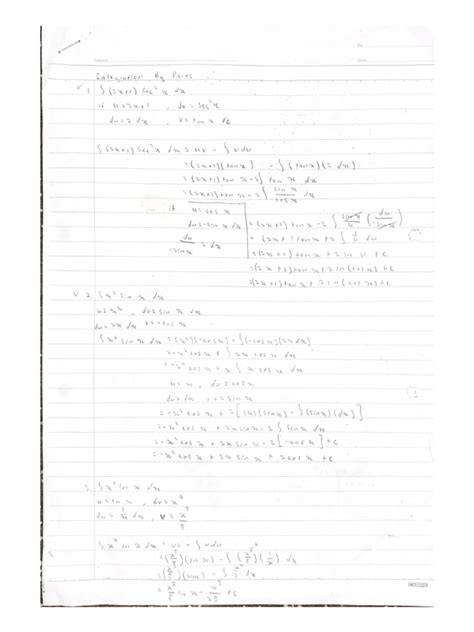 Integration By Parts
1. ∫(2x+1) sec² x dx
if u=2x+1 , dv = sec² x
du=2 dx , v=tan x +c
∫(2x+1) sec² x dx = uv - ∫v du
=(2x+1)(tan x) - ∫(tan x)(2 dx)
=(2x+1) tan x - 2∫ tan x dx
=(2x+1) tan x - 2∫ sin x / cos x dx
if u=cos x
du=-sin x dx
du / -sin x = dx
=(2x+1) tan x - 2 ∫ sin x / u (du / -sin x)
=(2x+1) tan x + 2 ∫ 1/u du
=(2x+1) tan x + 2 ln u + c
=(2x+1) tan x + 2 ln (cos x) + c
=(2x+1) tan x + 2 ln cos x + c
2. ∫x² sin x dx
u=x² , dv=sin x
du=2x dx v=-cos x
∫x² sin x dx = (x²)(-cos x) - ∫(-cos x)(2x dx)
=-x² cos x + ∫ 2x cos x dx
=-x² cos x + 2 ∫ x cos x dx
u=x , dv=cos x
du=dx , v=sin x
=-x² cos x + 2[(x)(sin x) - ∫(sin x)(dx)]
=-x² cos x + 2x sin x - 2 ∫ sin x dx
=-x² cos x + 2x sin x - 2[-cos x] + c
=-x² cos x + 2x sin x + 2cos x + c
3. ∫x⁴ ln x dx
u=ln x , dv=x⁴
du = 1/x dx , v = x⁵/5
∫x⁴ ln x dx = uv - ∫v du
=(x⁵/5)(ln x) - ∫(x⁵/5)(1/x) dx
=(x⁵/5)(ln x) - ∫ x⁴/5 dx
= x⁵/5 ln x - x⁵/25 + c